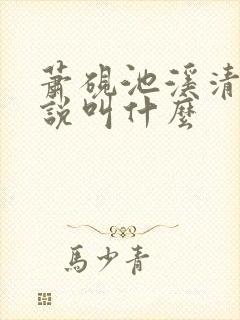 蕭硯池溪清
說叫什麼
馬少青